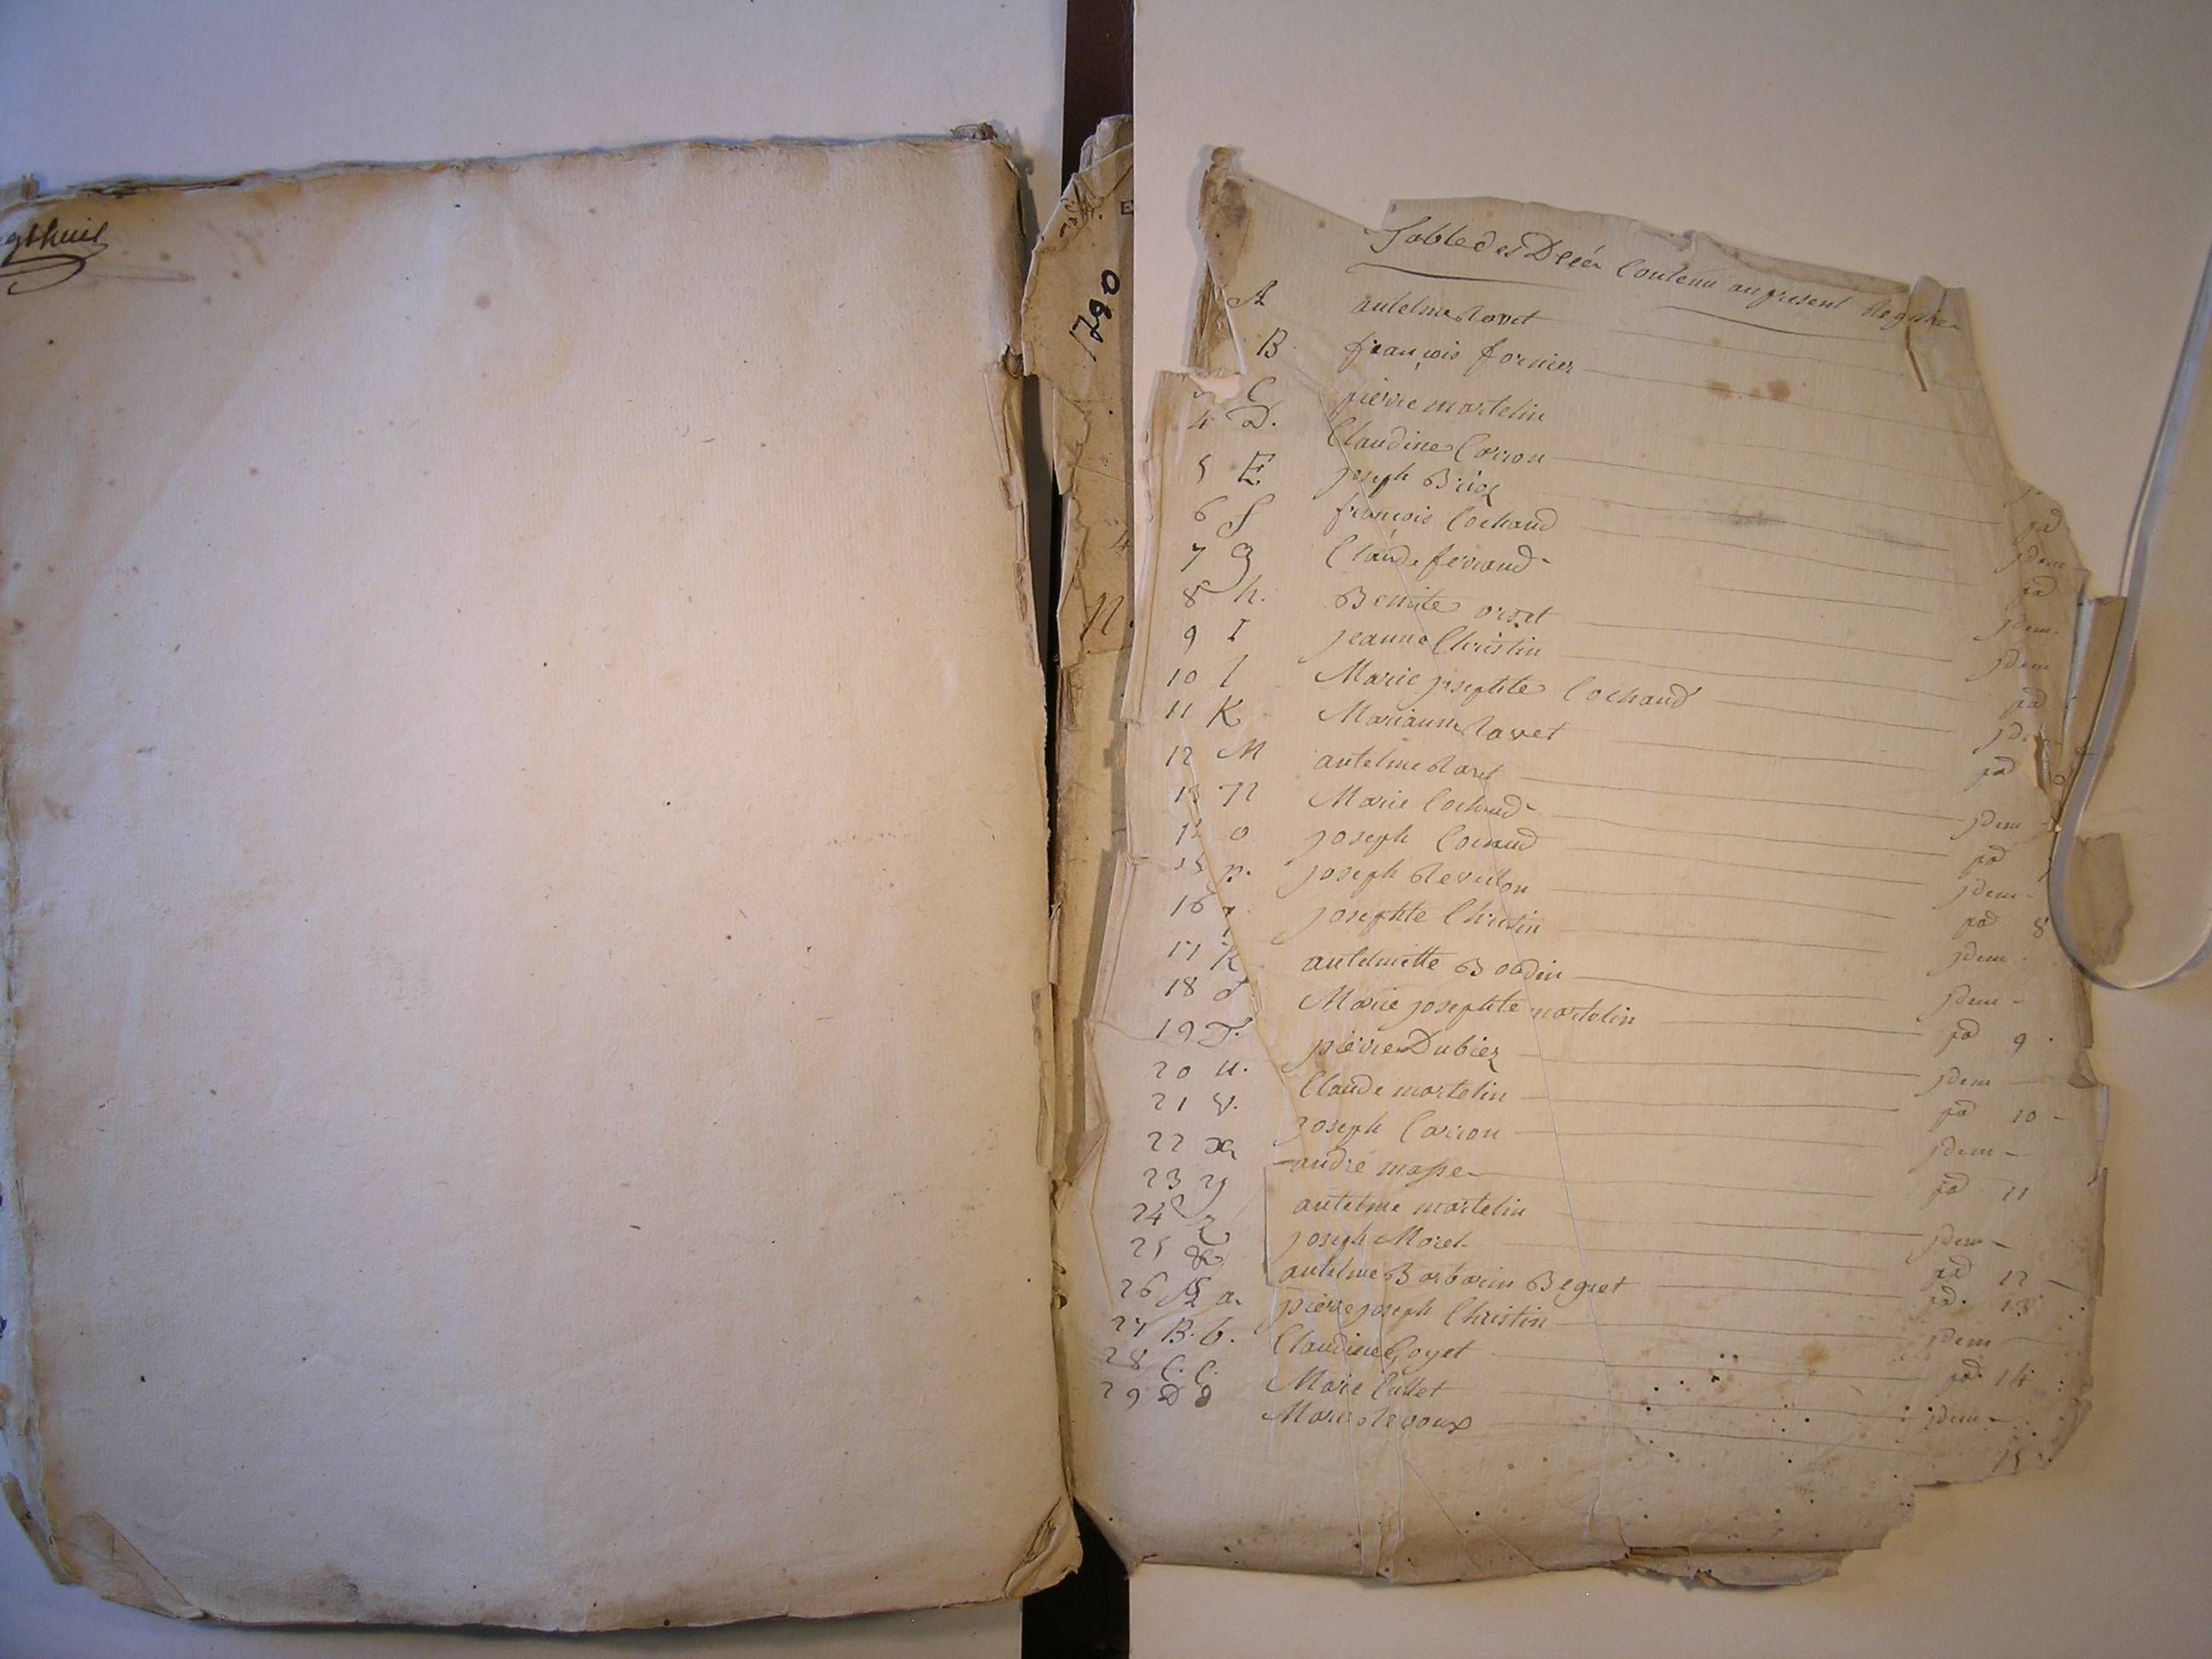 1780
Table des Decés Contenu au present Registre
A antelme Rovet
B françois fornier
C pierre martelin
4 D. Claudine Corron
5 E joseph Brioz pa
6 f françois Cochaud jdem
7 g Claude ferraud pa
8 h. Benoite orset jdem
9 I jeanne Christin jdem
10 l Marie josephte Cochaud pa
11 K Marianne Ravet
12 M antelme Ravet pa
13 N Marie Cochaud jdem
o joseph Cochaud pa
15 p. joseph Reveiron jdem
16 q josephte Christin pa 8
17 R antelmette Bordin jdem
18 Marie josephte martelin jdem
19 T. pierre Dubiez pa 9
20 u. Claude martelin jdem
21 v. joseph Carron pa 10
22 x andré masse jdem
23 y antelme martelin pa 11
24 z joseph Moret jdem
25 & antelme Barbarin Beguet pa 12
26 A a. pierre joseph Christin pa. 13
27 B. b. Claudine Goyet jdem
28 C. C. Marie Cullet pa 14
29 D d Marie Revoux jdem
15